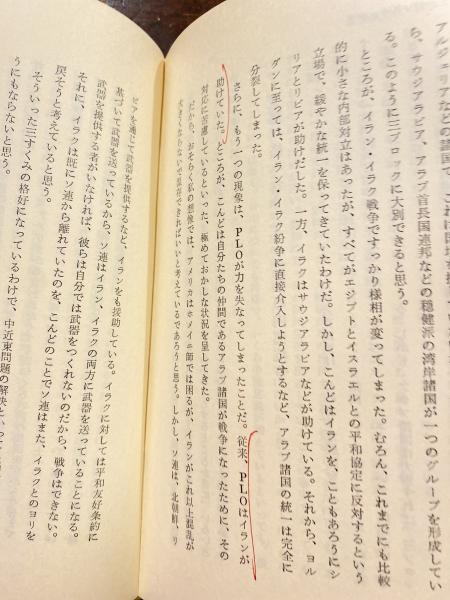 アルジェリアなどの諸国で、これは
ら、サウジアラビア、アラブ首長国連邦などの穏健派の湾岸諸国が一つのグループを形成してい
る。このように三ブロックに大別できると思う。
ところが、イラン・イラク戦争ですっかり様相が変ってしまった。むろん、これまでにも比較
的に小さな内部対立はあったが、すべてがエジプトとイスラエルとの平和協定に反対するという
立場で、緩やかな統一を保ってきていたわけだ。しかし、こんどはイランを、こともあろうにシ
リアとリビアが助けだした。一方、イラクはサウジアラビアなどが助けている。それから、ヨル
ダンに至っては、イラン・イラク紛争に直接介入しようとするなど、アラブ諸国の統一は完全に
分裂してしまった。
さらに、もう一つの現象は、PLOが力を失なってしまったことだ。従来、PLOはイランが
助けていた。ところが、こんどは自分たちの仲間であるアラブ諸国が戦争になったために、その
対応に苦慮しているといった、極めておかしな状況を呈してきた。
だから、おそらく私の想像では、アメリカはホメイニ師では困るが、イランがこれ以上混乱が
大きくならないで保存できればいいと考えているであろうと思う。しかし、ソ連は、北朝鮮、リ
ビアを通じて武器を提供するなど、イランをも援助している。イラクに対しては平和友好条約に
基づいて武器を送っているから、ソ連はイラン、イラクの両方に武器を送っていることになる。
武器を提供する者がいなければ、彼らは自分では武器をつくれないのだから、戦争はできない。
それに、イラクは既にソ連から離れていたのを、こんどのことでソ連はまた、イラクとのヨリを
戻そうと考えていると思う。
そういった三すくみの格好になっているわけで、中近東問題の解決といっ
うにもならないと思う。